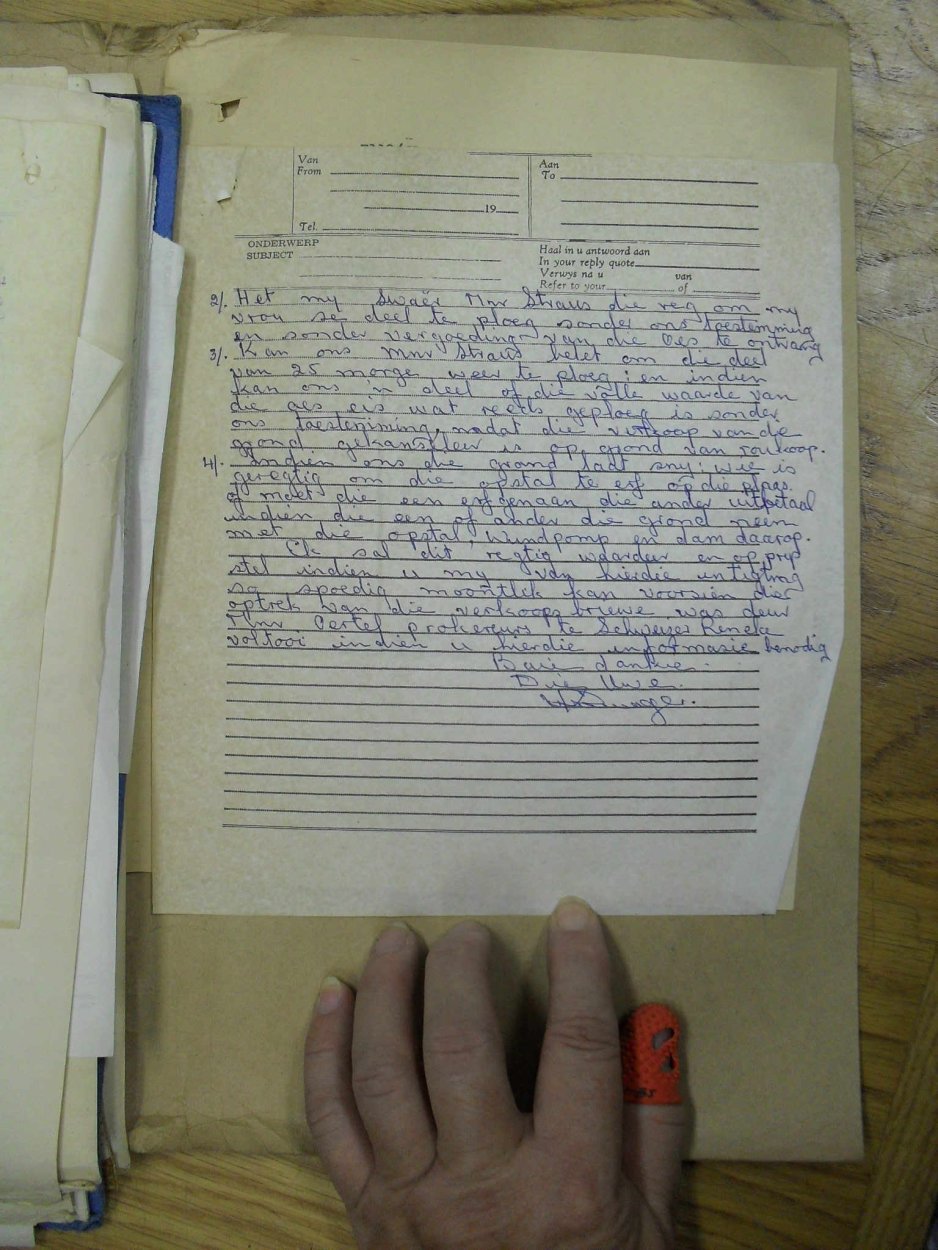 Van
From
Aan
To
19
Tel.
ONDERWERP
SUBJECT
Haal in u antwoord aan
In your reply quote
Verwys na u van
Refer to your of
2/. Het my Swaër Mnr Straus die reg om my
vrou se deel te ploeg sonder ons toestemming
en sonder vergoeding van die Oes te ontvang
3/. Kan ons mnr Straus belet om die deel
van 25 morge weer te ploeg: en indien
kan ons 'n deel of die volle waarde van
die oes eis wat reeds geploeg is sonder
ons toestemming, nadat die verkoop van die
grond gekanseleer is op grond van roukoop.
4/. Indien ons die grond laat sny: wie is
geregtig om die opstal te erf op die plaas.
of moet die een erfgenaam die ander uitbetaal
indien die een of ander die grond neem
met die opstal, windpomp en dam daarop.
Ek sal dit regtig waardeer en op prys
stel indien u my van hierdie inligting
so spoedig moontlik kan voorsien die
optrek van die verkoops briewe was deur
Mnr Oertel prokereurs te Schweizer Reneke
voltooi indien u hierdie informasie benodig
Baie dankie.
Die Uwe.